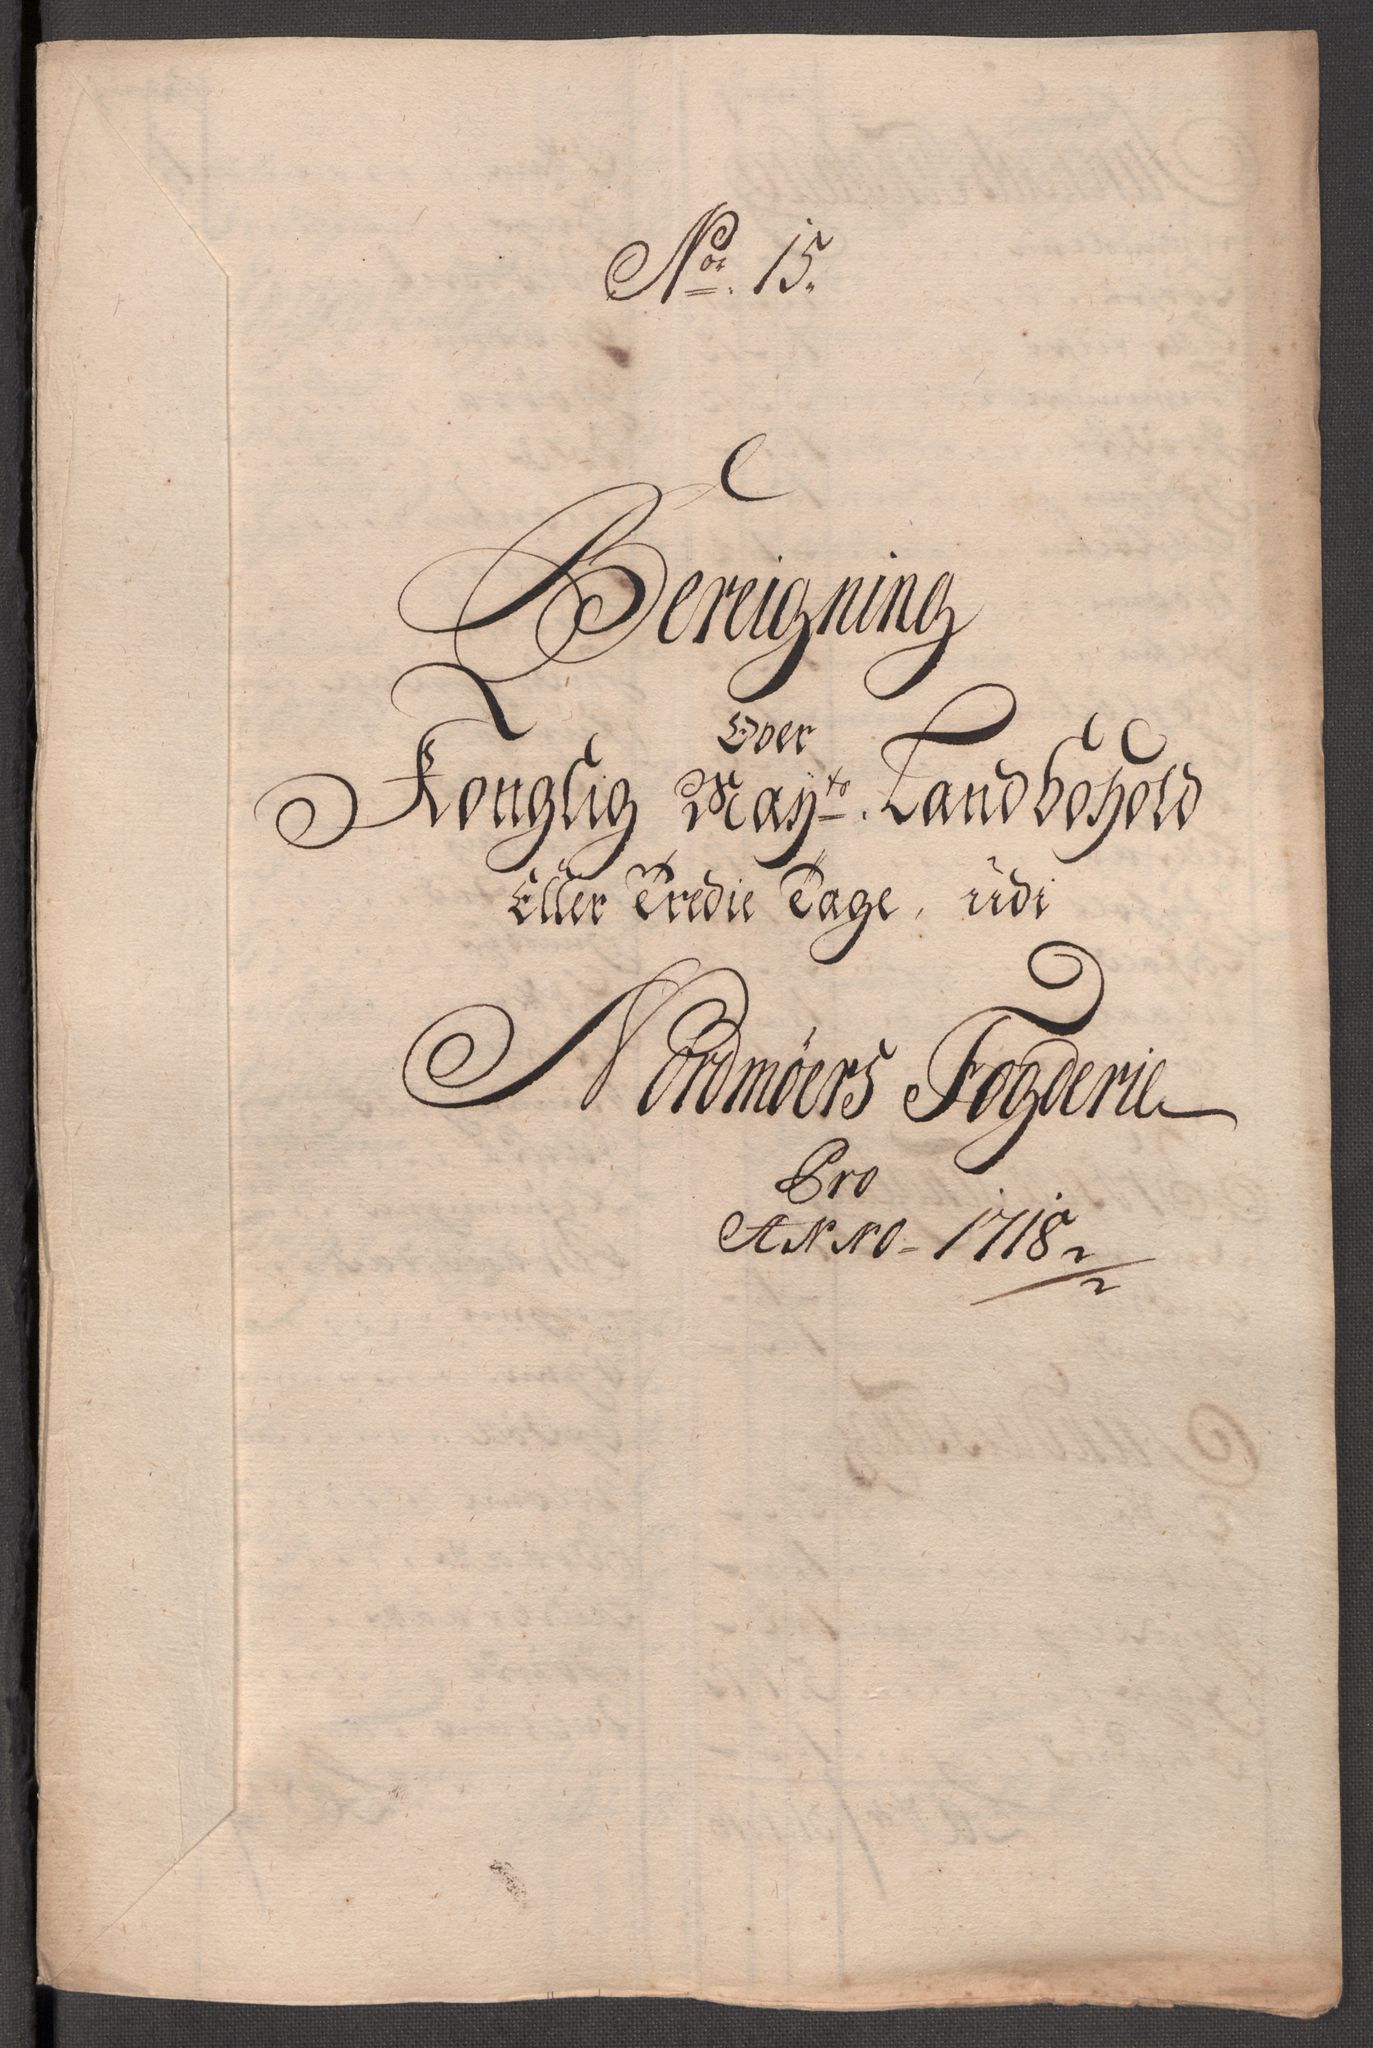 No: 15.
Bereigning
Over
Konglig Mayts. Landbohold
Eller Tredie Tage, udi
Nordmøers Fogderie
Pro
ANNO - 1718